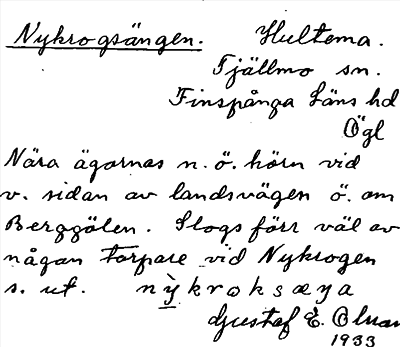 Nykrogsängen. Hultema.
Tjällmo sn.
Finspånga läns hd
Ögl
Nära ägornas n. ö. hörn vid
v. sidan av landsvägen ö. om
Berggölen. Slogs förr väl av
någan torpare vid Nykrogen
s. ut. nỳkroksæya
Gustaf E.
1933